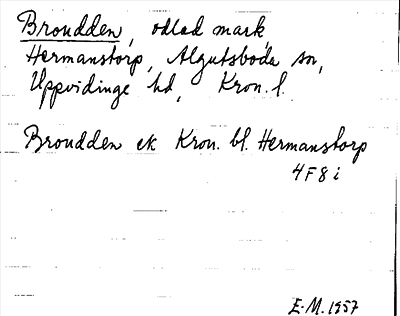 Broudden, odlad mark,
Hermanstorp, Algutsboda sn,
Uppvidinge hd, Kron. l.
Broudden ek Kron. bl. Hermanstorp
4F8i
E.M. 1957